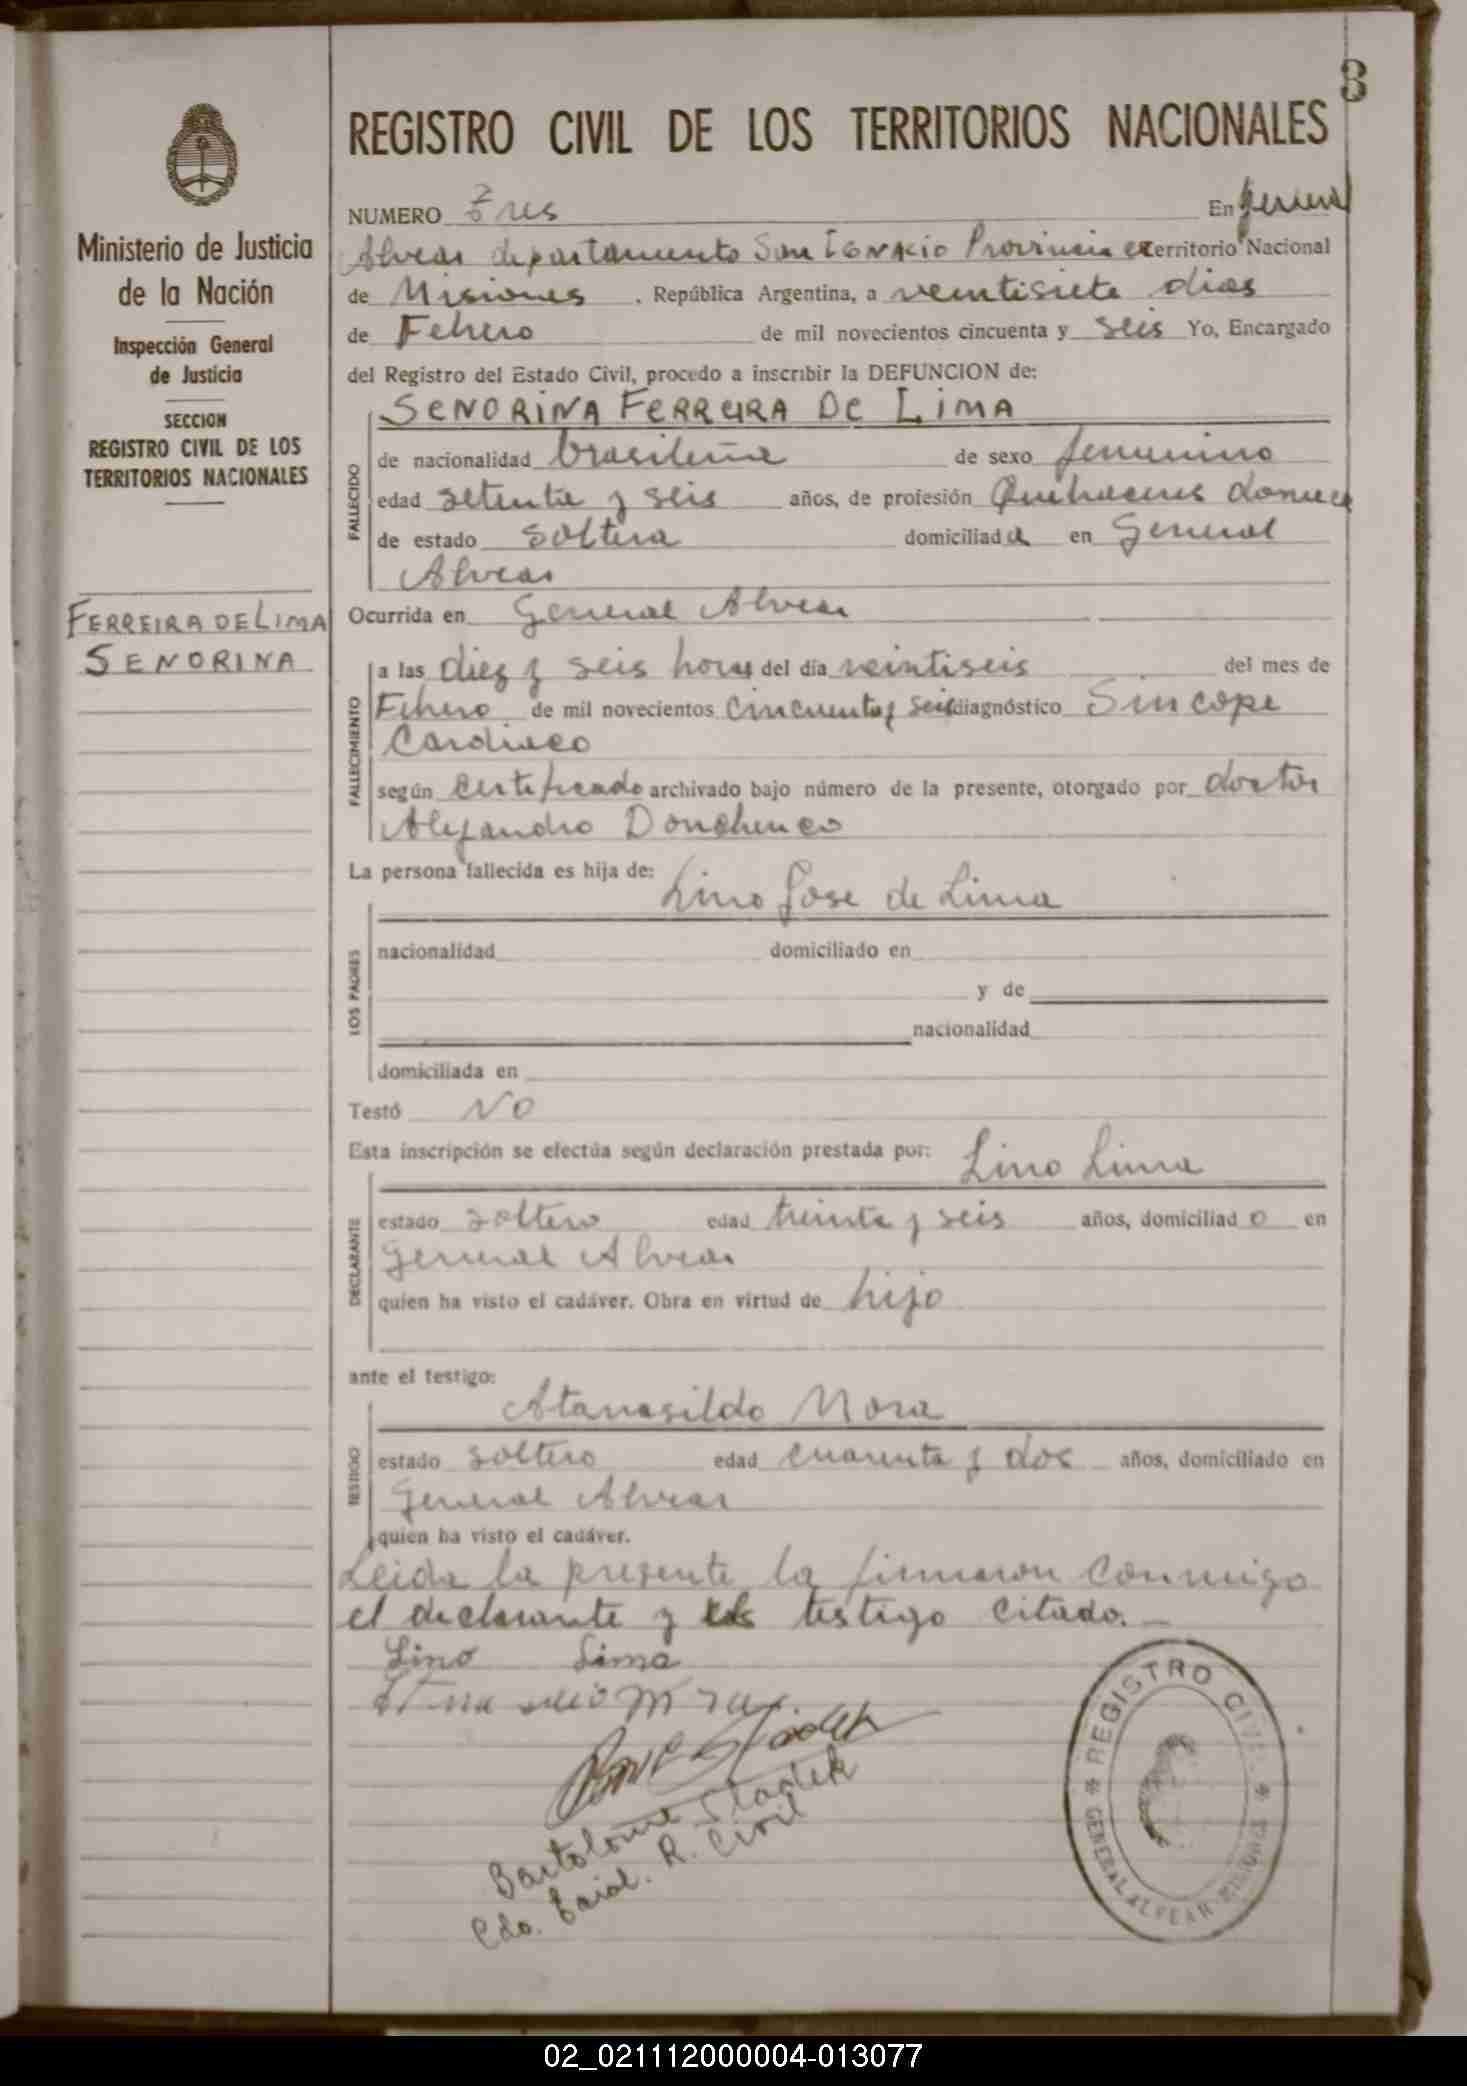 3
Ministerio de Justicia
de la Nación
Inspección General
de Justicia
SECCION
REGISTRO CIVIL DE LOS
TERRITORIOS NACIONALES
FERREIRA DE LIMA
SENORINA
REGISTRO CIVIL DE LOS TERRITORIOS NACIONALES
NUMERO Tres En General
Alvear departamento San IGNACIO Provincia Territorio Nacional
de Misiones , República Argentina, a veintisiete dias
de Febrero de mil novecientos cincuenta y seis Yo, Encargado
del Registro del Estado Civil, procedo a inscribir la DEFUNCION de:
SENORINA FERREIRA DE LIMA
FALLECIDO
de nacionalidad brasileña de sexo femenino
edad setenta y seis años, de profesión Quehaceres
de estado soltera domiciliada en General
Alvear
Ocurrida en General Alvear
FALLECIMIENTO
a las diez y seis horas del día veintiseis del mes de
Febrero de mil novecientos cincuenta y seis diagnóstico Sincope
Cardiaco
según certificado archivado bajo número de la presente, otorgado por doctor
Alejandro
La persona fallecida es hija de:
Lino Jose de Lima
LOS PADRES
nacionalidad domiciliado en
y de
nacionalidad
domiciliada en
Testó NO
Esta inscripción se efectúa según declaración prestada por: Lino Lima
DECLARANTE
estado soltero edad treinta y seis años, domiciliado en
General Alvear
quien ha visto el cadáver. Obra en virtud de hijo
ante el testigo:
Atanasildo Mora
TESTIGO
estado soltero edad cuarenta y dos años, domiciliado en
General Alvear
quien ha visto el cadáver.
Leida la presente la firmaron conmigo
el declarante y testigo citado.
Lino Lima
Bartolome Sladek
R. Civil
REGISTRO CIVIL
GENERAL ALVEAR MISIONES
02_021112000004-013077